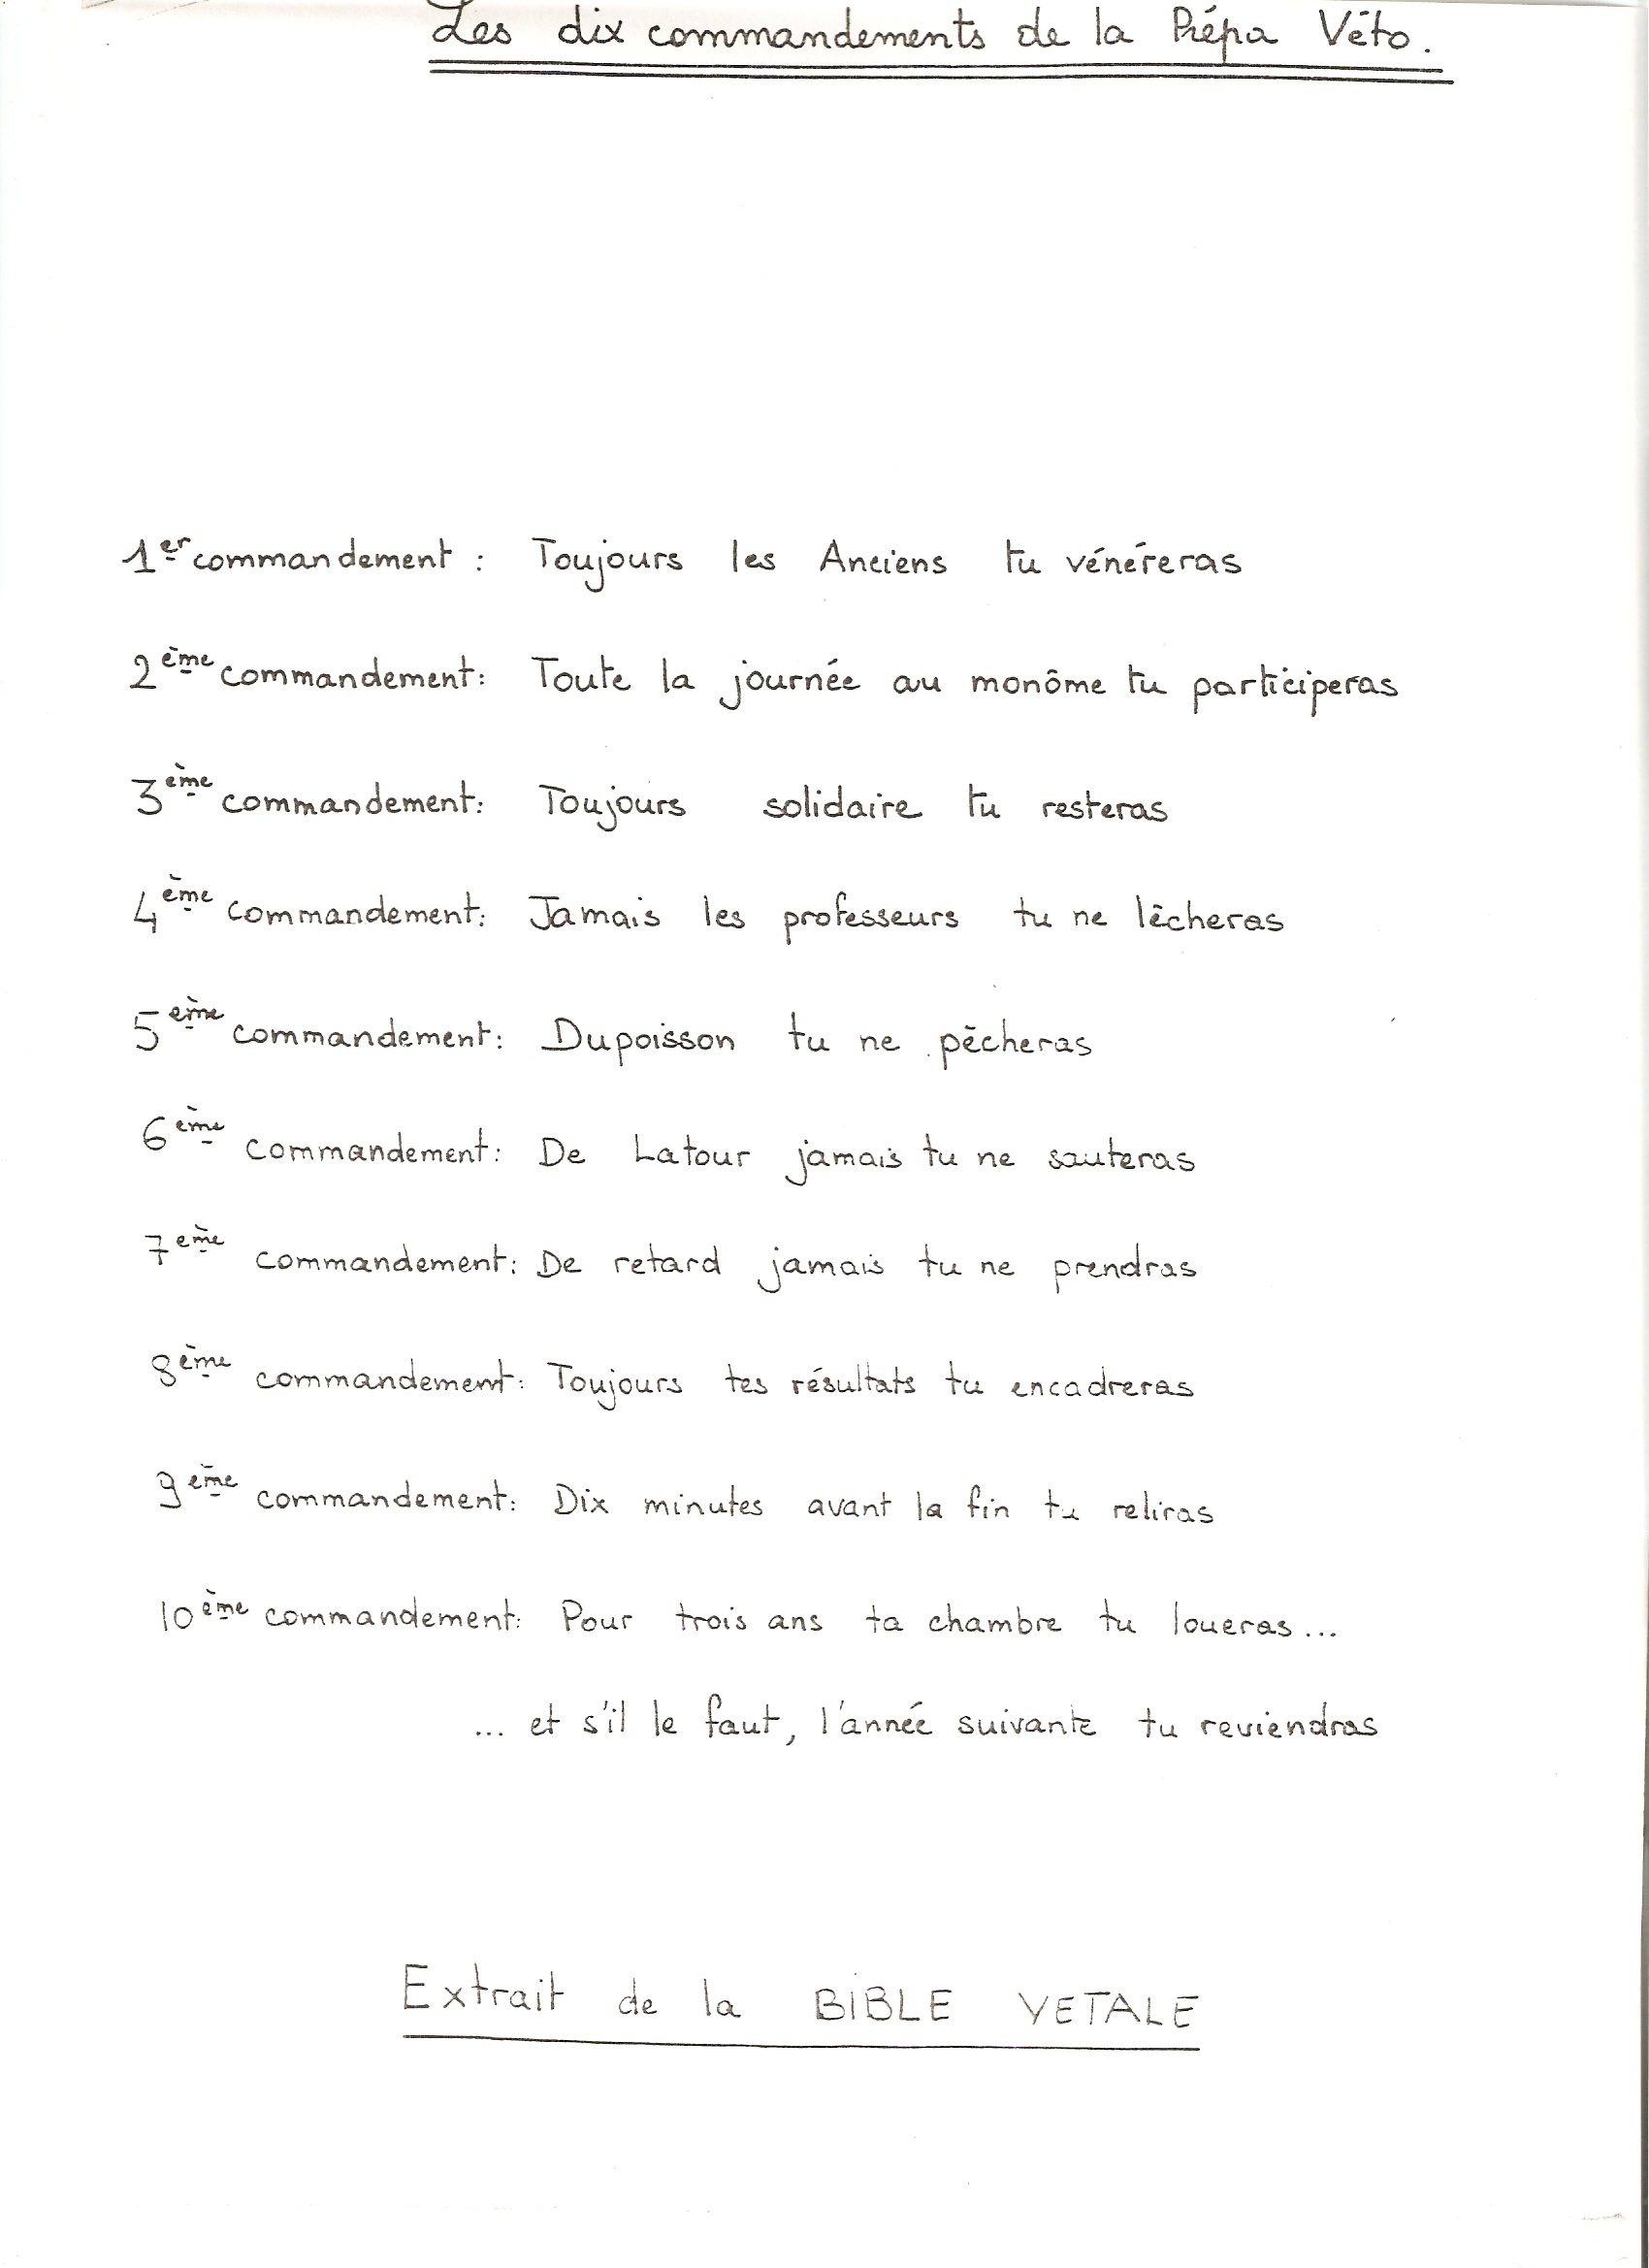 Les dix commandements de la Prépa Véto.
1er commandement : Toujours les Anciens tu vénéreras
2ème commandement : Toute la journée au monôme tu participeras
3ème commandement : Toujours solidaire tu resteras
4ème commandement : Jamais les professeurs tu ne lècheras
5ème commandement : Dupoisson tu ne pècheras
6ème commandement : De Latour jamais tu ne sauteras
7ème commandement : De retard jamais tu ne prendras
8ème commandement : Toujours tes résultats tu encadreras
9ème commandement : Dix minutes avant la fin tu reliras
10ème commandement : Pour trois ans ta chambre tu loueras...
... et s'il le faut, l'année suivante tu reviendras
Extrait de la BIBLE VETALE